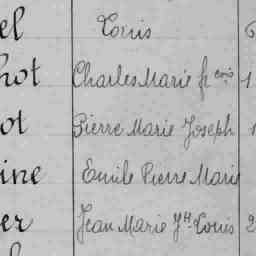 el Louis 6
hot Charles Marie fr cois 1
ot Pierre Marie Joseph 1
ine Emile Pierre Marie
er Jean Marie Jh Louis 2